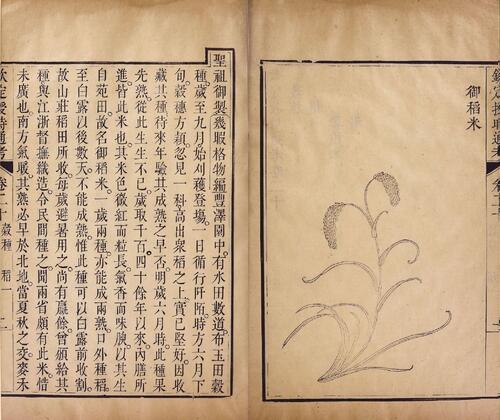 御稻米
聖祖御製幾暇格物編豐澤園中有水田數道布玉田穀
種歲至九月始刈穫登塲一日循行阡陌時方六月下
旬穀穗方穎忽見一科高出衆稻之上實已堅好因收
藏其種待來年驗其成熟之早否明歲六月時此種果
先熟從此生生不已歲取千百四十餘年以來內膳所
進皆此米也其米色微紅而粒長氣香而味腴以其生
自苑田故名御稻米一歲兩種亦能成兩熟口外種稻
至白露以後數天不能成熟惟此種可以白露前收割
故山莊稻田所收每歲避暑用之尚有贏餘曾頒給其
種與江浙督撫織造令民間種之聞兩省頗有此米惜
未廣也南方氣暖其熟必早於北地當夏秋之交麥禾
欽定授時通考 卷二十 穀種 稻一 二